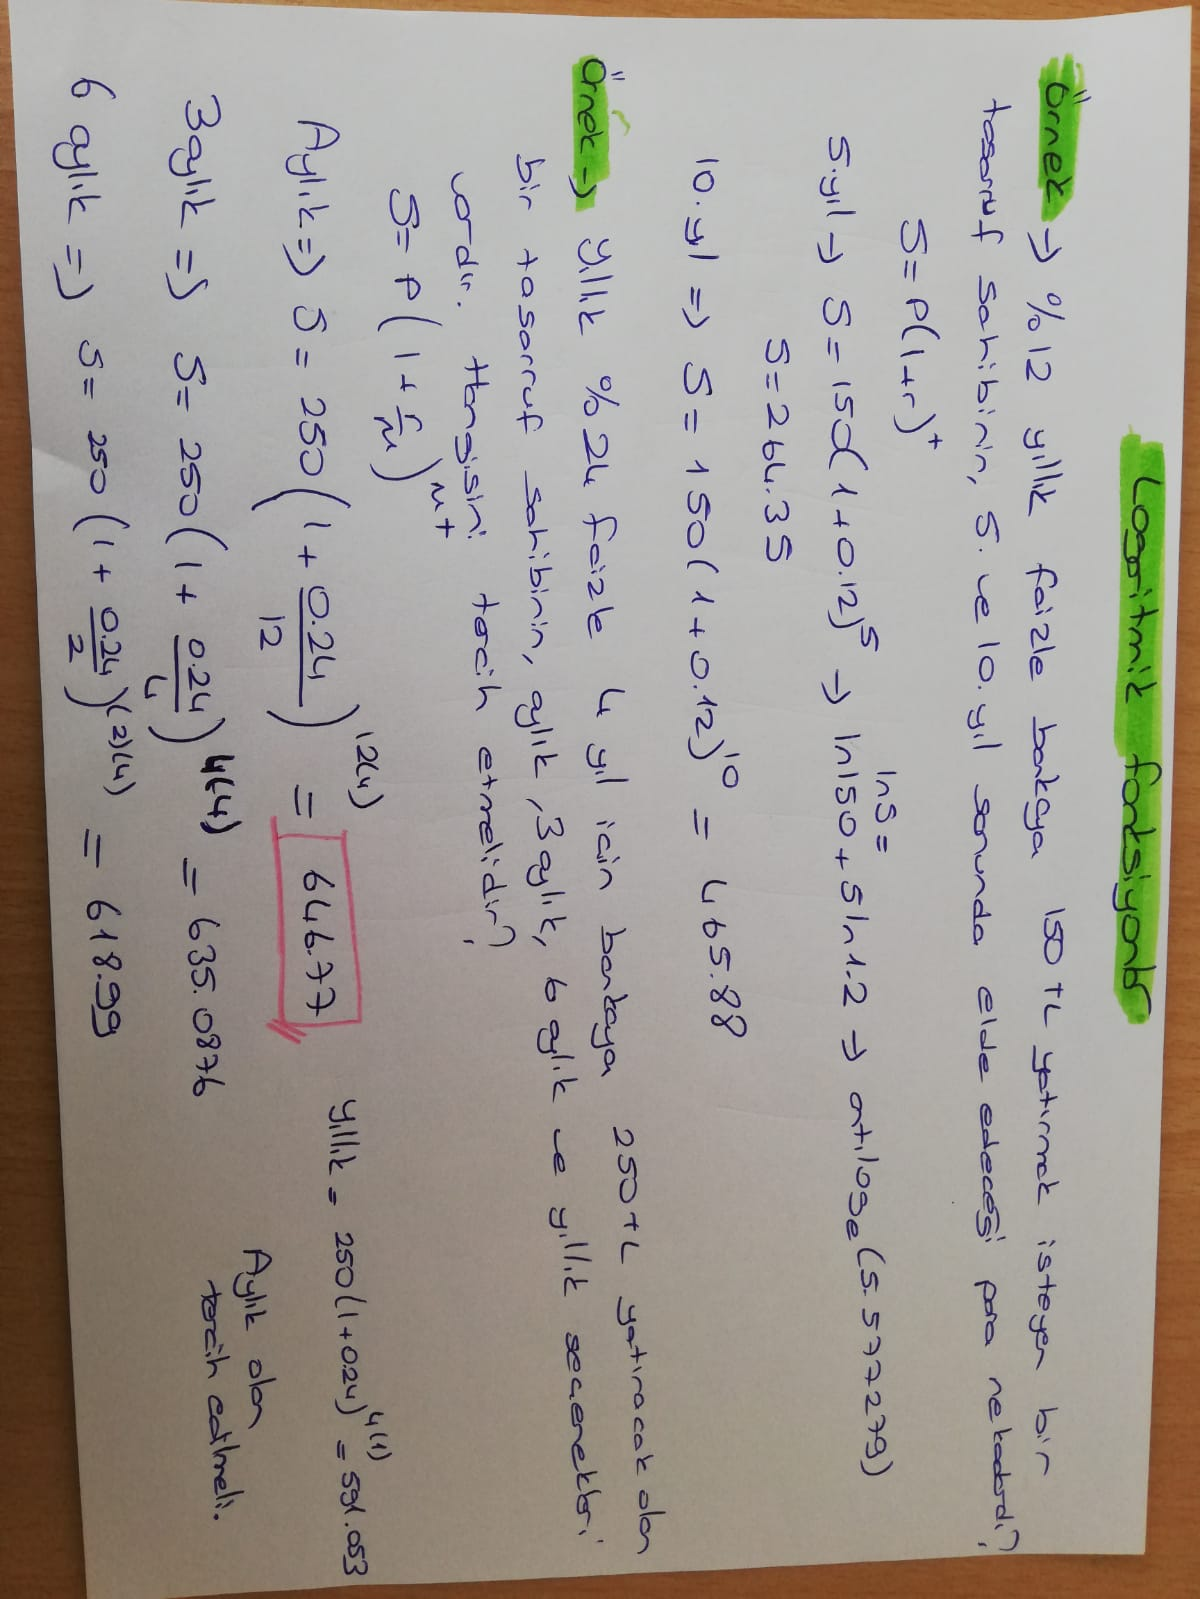 Logaritmik fonksiyonlar
Örnek → %12 yıllık faizle bankaya 150 TL yatırmak isteyen bir
tasarruf sahibinin, 5. ve 10. yıl sonunda elde edeceği para nekadardı?
S = P(1+r)^t
5.yıl → S = 150(1+0.12)^5 → lnS = ln150 + 5ln1.2 → antiloge(5.577279)
S = 264.35
10.yıl ⇒ S = 150(1+0.12)^10 = 465.88
Örnek → Yıllık %24 faizle 4 yıl için bankaya 250 TL yatıracak olan
bir tasarruf sahibinin, aylık, 3 aylık, 6 aylık ve yıllık seçenekleri
vardır. Hangisini tercih etmelidir?
S = P(1+r/m)^mt
Aylık ⇒ S = 250(1+0.24/12)^12(4) = 646.77
yıllık = 250(1+0.24)^4(1) = 591.053
3aylık ⇒ S = 250(1+0.24/4)^4(4) = 635.0876
Aylık olan
tercih edilmeli.
6 aylık ⇒ S = 250(1+0.24/2)^(2)(4) = 618.99